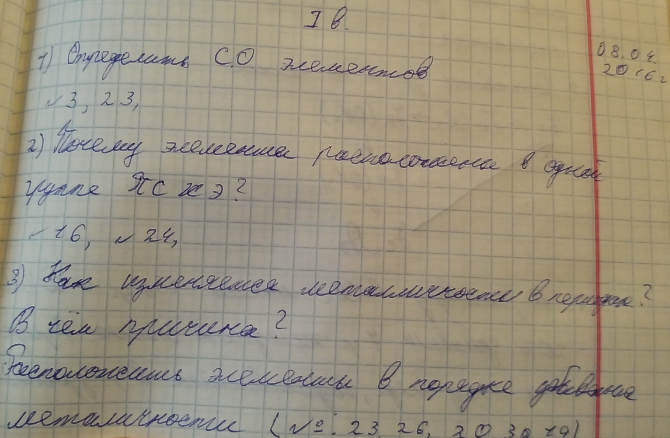 I в.
08.04.
2016 г
1) Определить С.О элементов
№3, 23,
2) Почему элементы расположены в одной
группе ПСХЭ?
№16, №24,
3) Как изменяется металличность в периодах?
В чём причина?
Расположить элементы в порядке
металичности (№: 23, 26, 20, 30, 19)